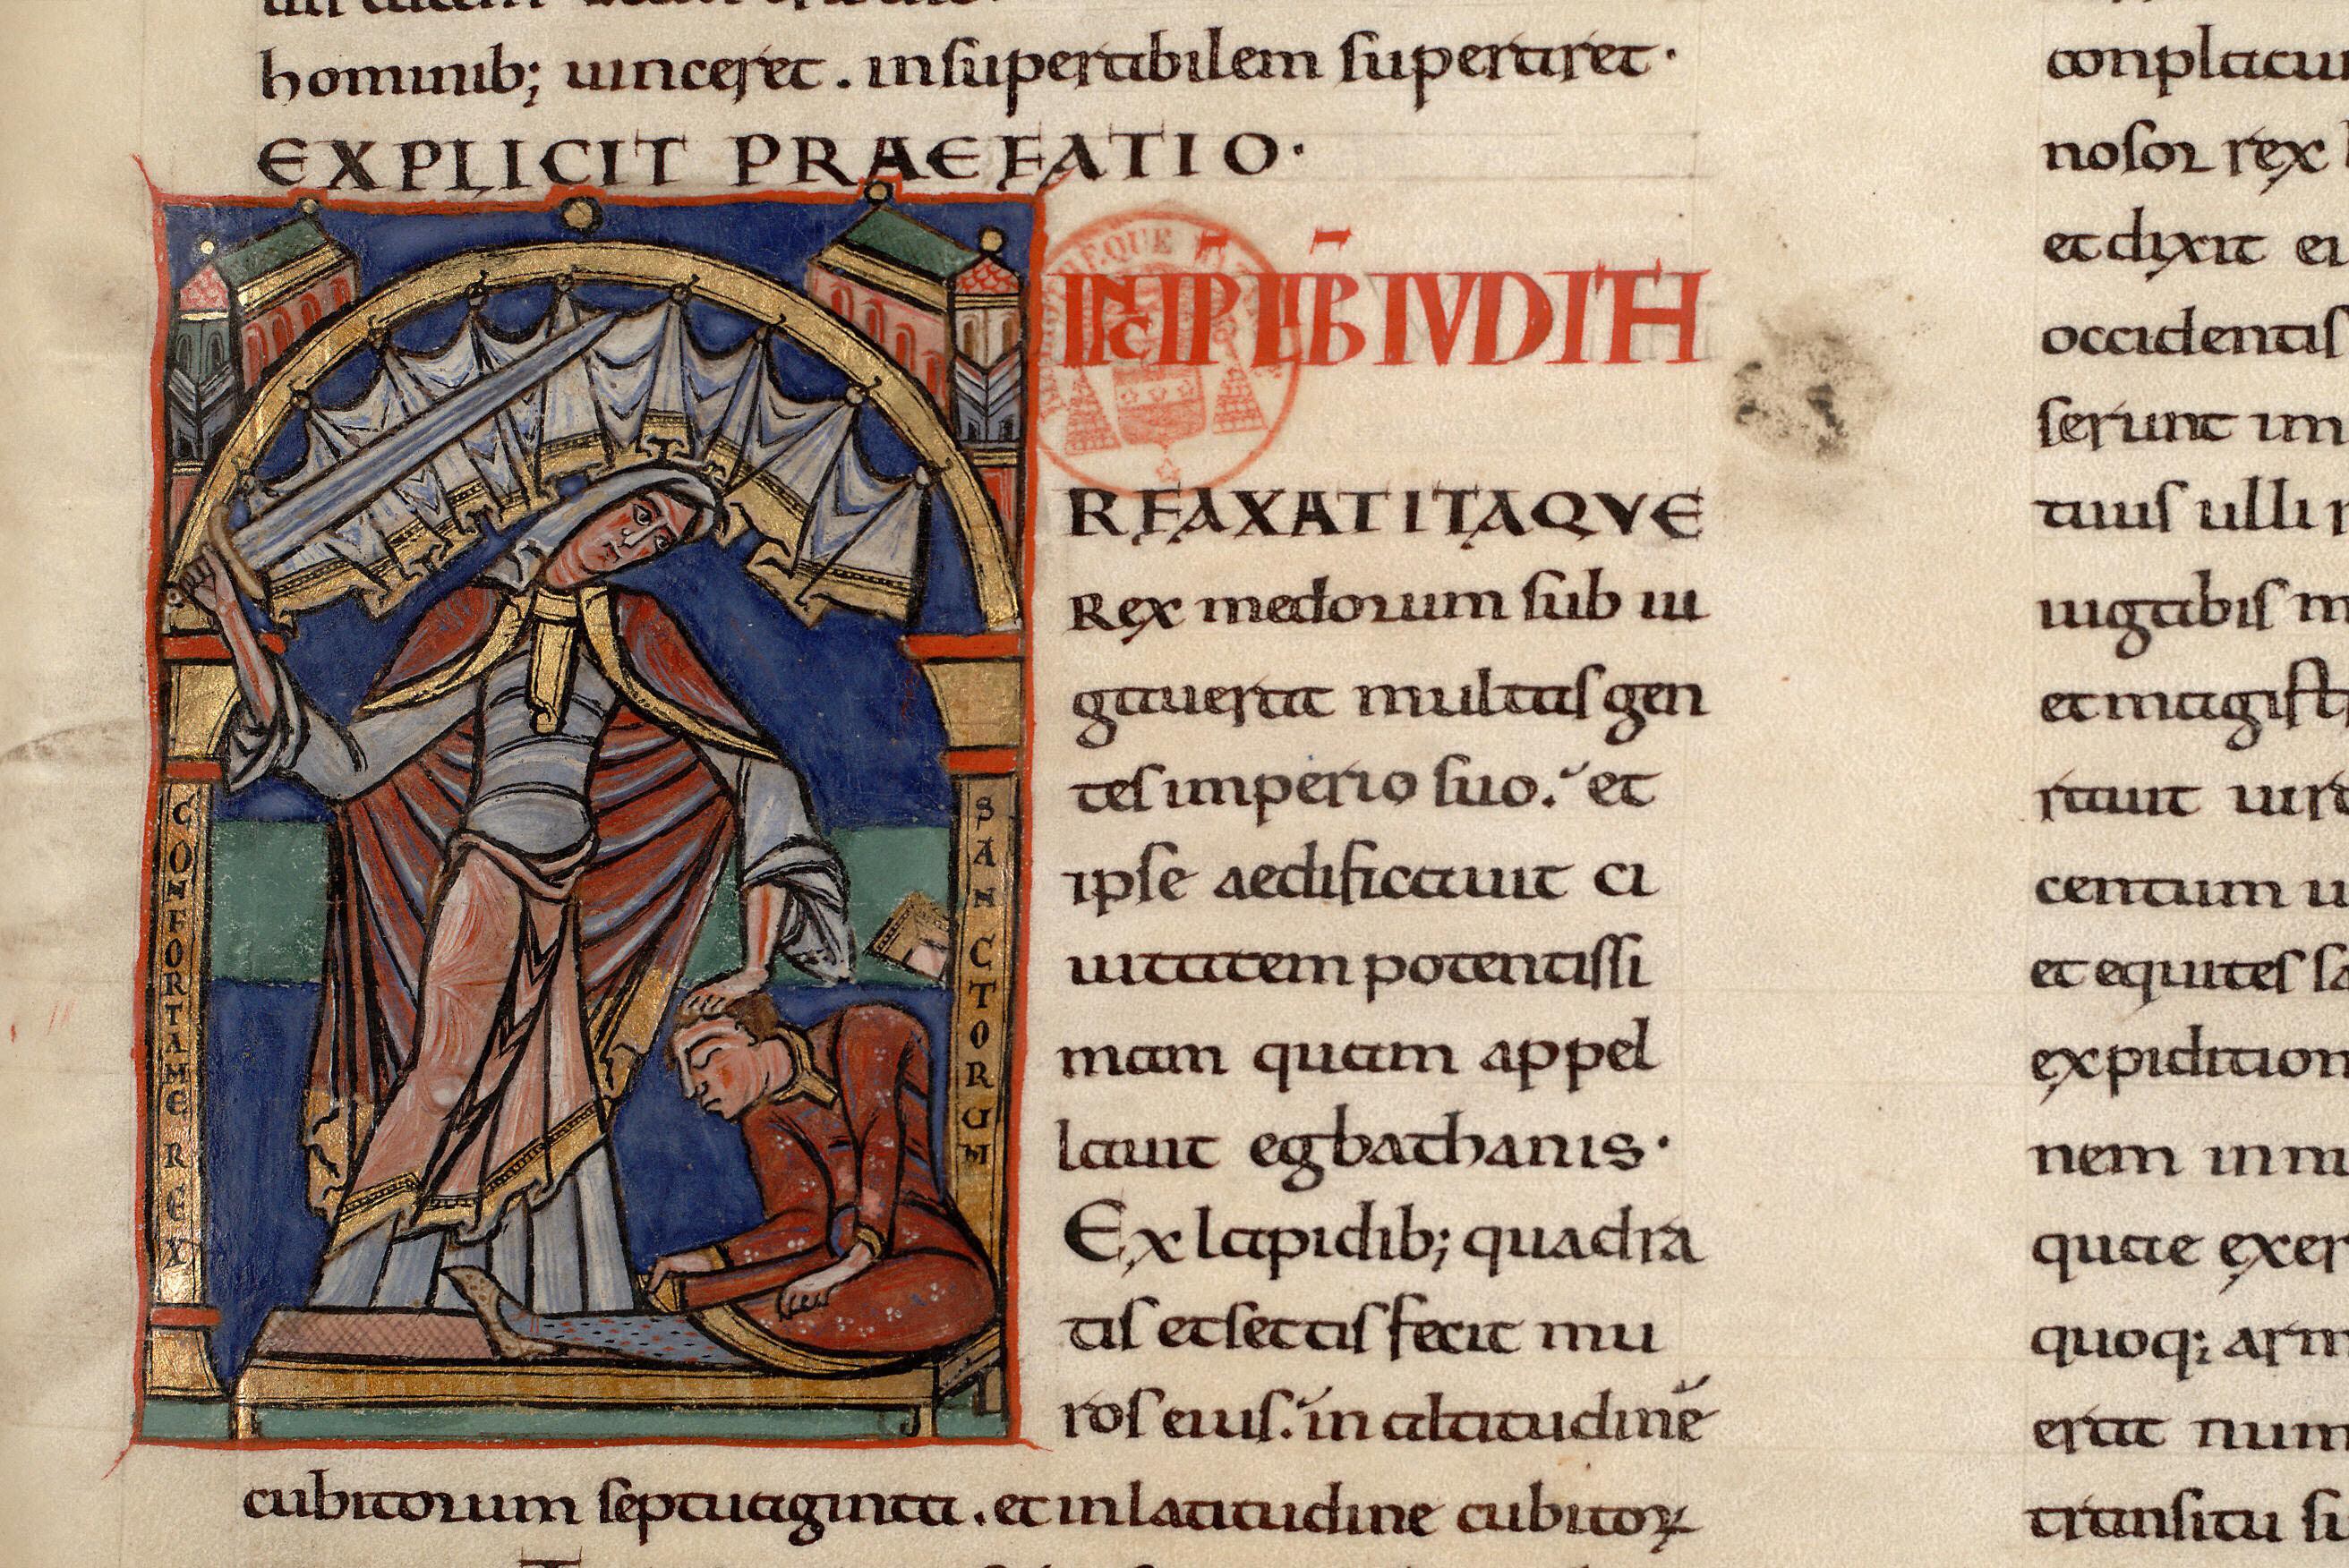 hominib; uinceret . insuperabilem superaret ·
EXPLICIT PRAEFATIO ·
INCIP LIB IVDITH
CONFORTAME REX
SANCTORUM
RFAXAT ITAQVE
Rex medorum sub iu
gauerat multas gen
tes imperio suo. et
ipse aedificauit ci
uitatem potentissi
mam quam appel
lauit egbathanis ·
Ex lapidib; quadra
tis et sectis fecit mu
ros eius. in altitudinē
cubitorum septuaginta . et in latitudine cubitoꝝ
conplacu
nosor rex
et dixit ei
occidentis
serunt im
tuus ulli
iugabis m
et magist
rauit uir
centum u
et equites sa
expidition
nem in m
quae exer
quoq; arm
erat num
transitu su